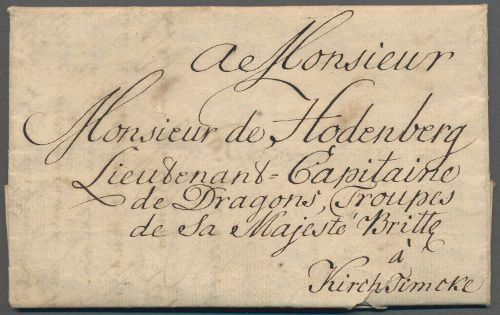 A Monsieur
Monsieur de Hodenberg
Lieutenant-Capitaine
de Dragons, Troupes
de Sa Majesté Britte
à
Kirch Timcke